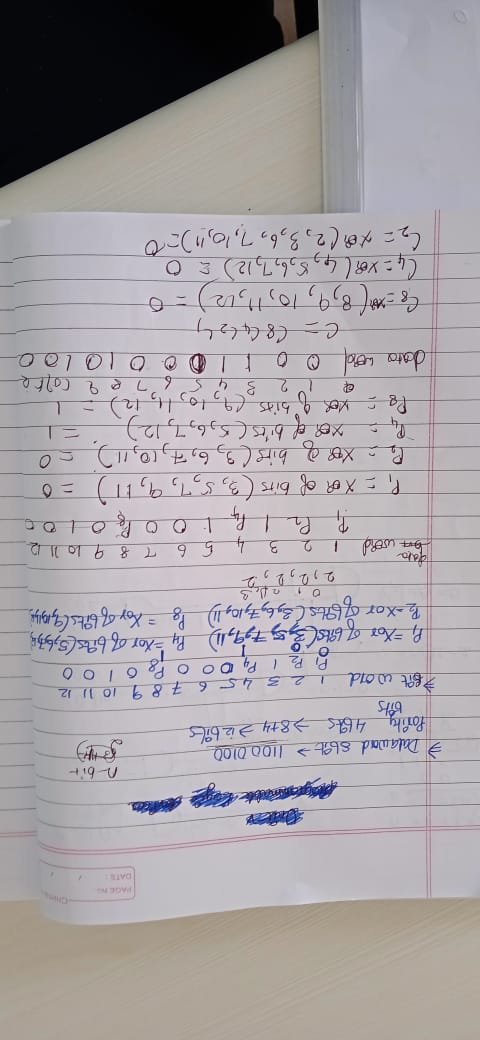 PAGE NO:
DATE: / /
⇒ Dataword 8bit → 11000100
n-bit
Parity 4bits → 8+4 → 12 bits
bits
⇒ Bit word 1 2 3 4 5 6 7 8 9 10 11 12
P1 P2 1 P4 1 0 0 P8 0 1 0 0
0 0 1 1
P1 = Xor of bits (3,5,7,9,11) P4 = Xor of bits (5,6,7,12)
P2 = Xor of bits (3,6,7,10,11) P8 = Xor of bits (9,10,11,12)
data word 1 2 3 4 5 6 7 8 9 10 11 12
P1 P2 1 P4 1 0 0 P8 0 1 0 0
P1 = xor of bits (3,5,7,9,11) = 0
P2 = xor of bits (3,6,7,10,11) = 0
P4 = xor of bits (5,6,7,12) = 1
P8 = xor of bits (9,10,11,12) = 1
1 2 3 4 5 6 7 8 9 10 11 12
data word 0 0 1 1 1 0 0 1 0 1 0 0
C = C8 C4 C2 C1
C8 = xor (8,9,10,11,12) = 0
C4 = xor (4,5,6,7,12) = 0
C2 = xor (2,3,6,7,10,11) = 0